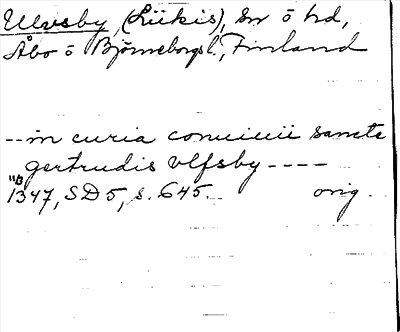 Ulvsby, (Liikis), sn o hd,
Åbo o Björneborgs l., Finland
-- in curia conuiuii sancte
gertrudis vlfsby ----
1347, SD 5, s. 645. orig.